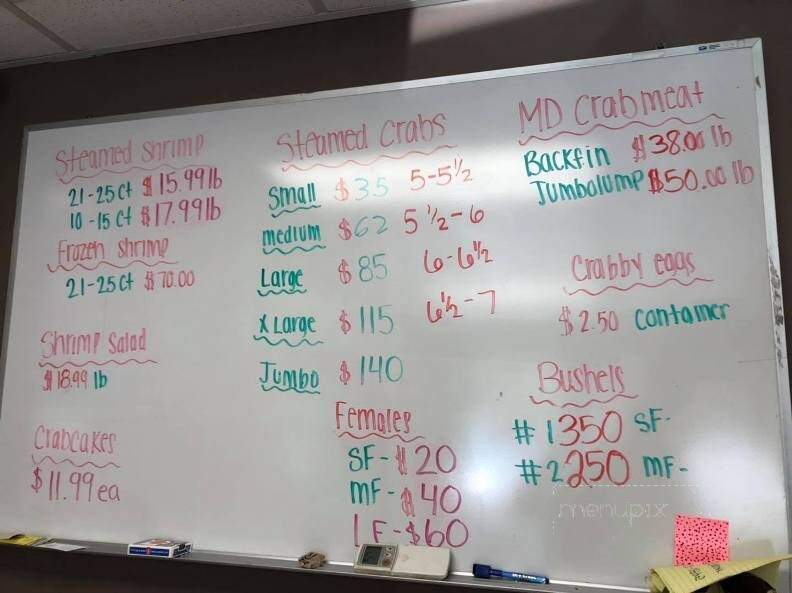 Steamed Shrimp
21-25 ct $15.99 lb
10-15 ct $17.99 lb
Frozen Shrimp
21-25 ct $70.00
Shrimp Salad
$18.99 lb
Crabcakes
$11.99 ea
Steamed Crabs
Small $35 5-5 1/2
medium $62 5 1/2-6
Large $85 6-6 1/2
X Large $115 6 1/2-7
Jumbo $140
Females
SF-$20
MF-$40
LF-$60
MD Crabmeat
Backfin $38.00 lb
Jumbolump $50.00 lb
Crabby eggs
$2.50 container
Bushels
#1 350 SF-
#2 250 MF-
menupix